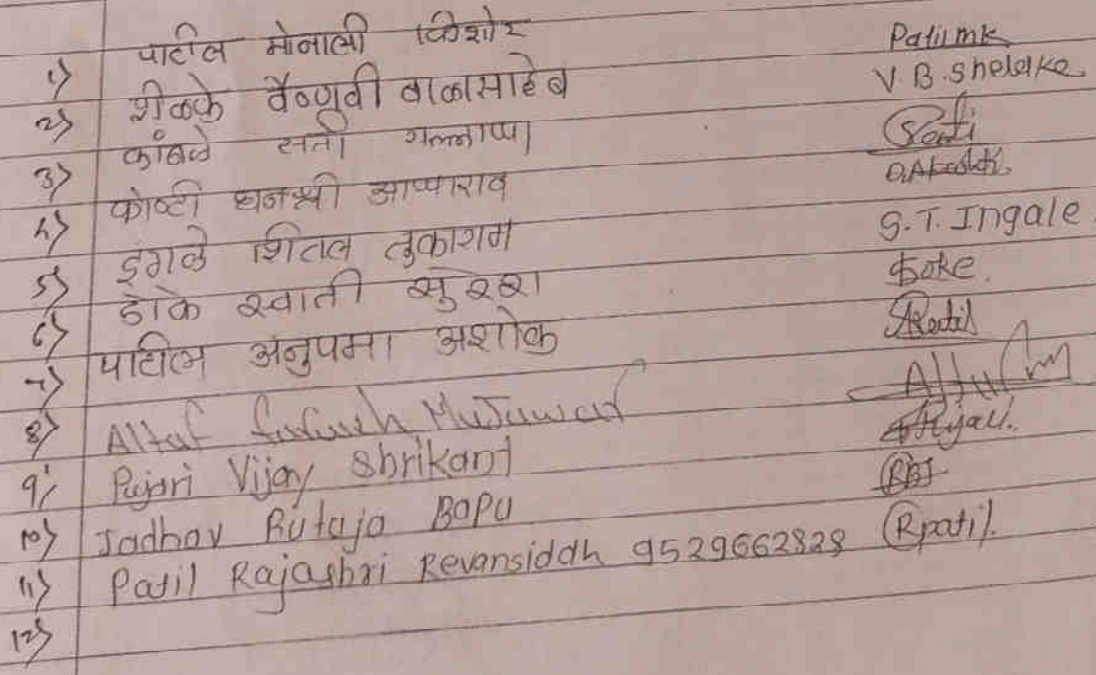 1) पाटील मोनाली किशोर Patil mk
2) शेळके वैष्णवी बाळासाहेब V. B. Shelake
3) कांबळे सती
4) कोष्टी धनश्री आप्पाराव
5) इंगळे शितल तुकाराम S. T. Ingale
6) डोके स्वाती सुरेश Doke.
7) पाटील अनुपमा अशोक
8) Altaf Mujawar
9) Pujari Vijay Shrikant
10) Jadhav Rutuja Bapu RBJ
11) Patil Rajashri Revansiddh 9529662828 Rpatil.
12)